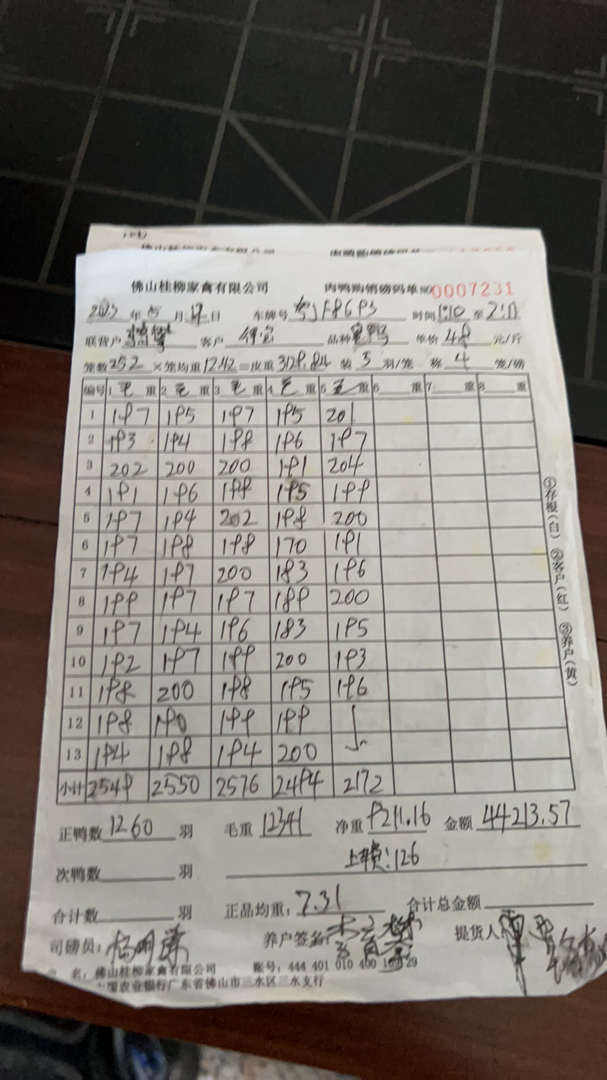 佛山桂柳家禽有限公司 肉鸭购销磅码单 0007231
2023 年 5 月 12 日 车牌号 粤JF8693 时间 1:10 至
联营户 客户 品种 单价 4.8 元/斤
笼数 252 × 笼均重 12.42 = 皮重 3129.84 装 5 羽/笼 称 4 笼/磅
编号 1 毛 重 2 毛 重 3 毛 重 4 毛 重 5 毛 重 6 重 7 重 8 重
1 197 195 197 195 201
2 193 194 198 196 197
3 202 200 200 191 204
4 191 196 198 195 199
5 197 194 202 198 200
6 197 198 198 170 191
7 194 197 200 183 196
8 199 197 197 189 200
9 197 194 196 183 195
10 192 197 199 200 193
11 198 200 198 195 196
12 198 190 199 199
13 194 198 194 200
小计 2549 2550 2576 2494 2172
①存根(白) ②客户(红) ③养户(黄)
正鸭数 1260 羽 毛重 12341 净重 9211.16 金额 44213.57
次鸭数 羽 126
合计数 羽 正品均重: 7.31 合计总金额
司磅员: 养户签名: 提货人:
名: 佛山桂柳家禽有限公司 账号: 444 401 010 400 29
农业银行广东省佛山市三水区三水支行